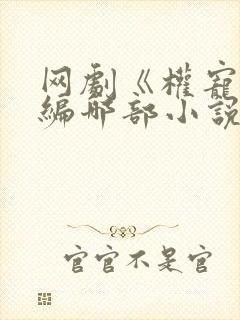 网劇《權寵
編那部小說
官官不是官